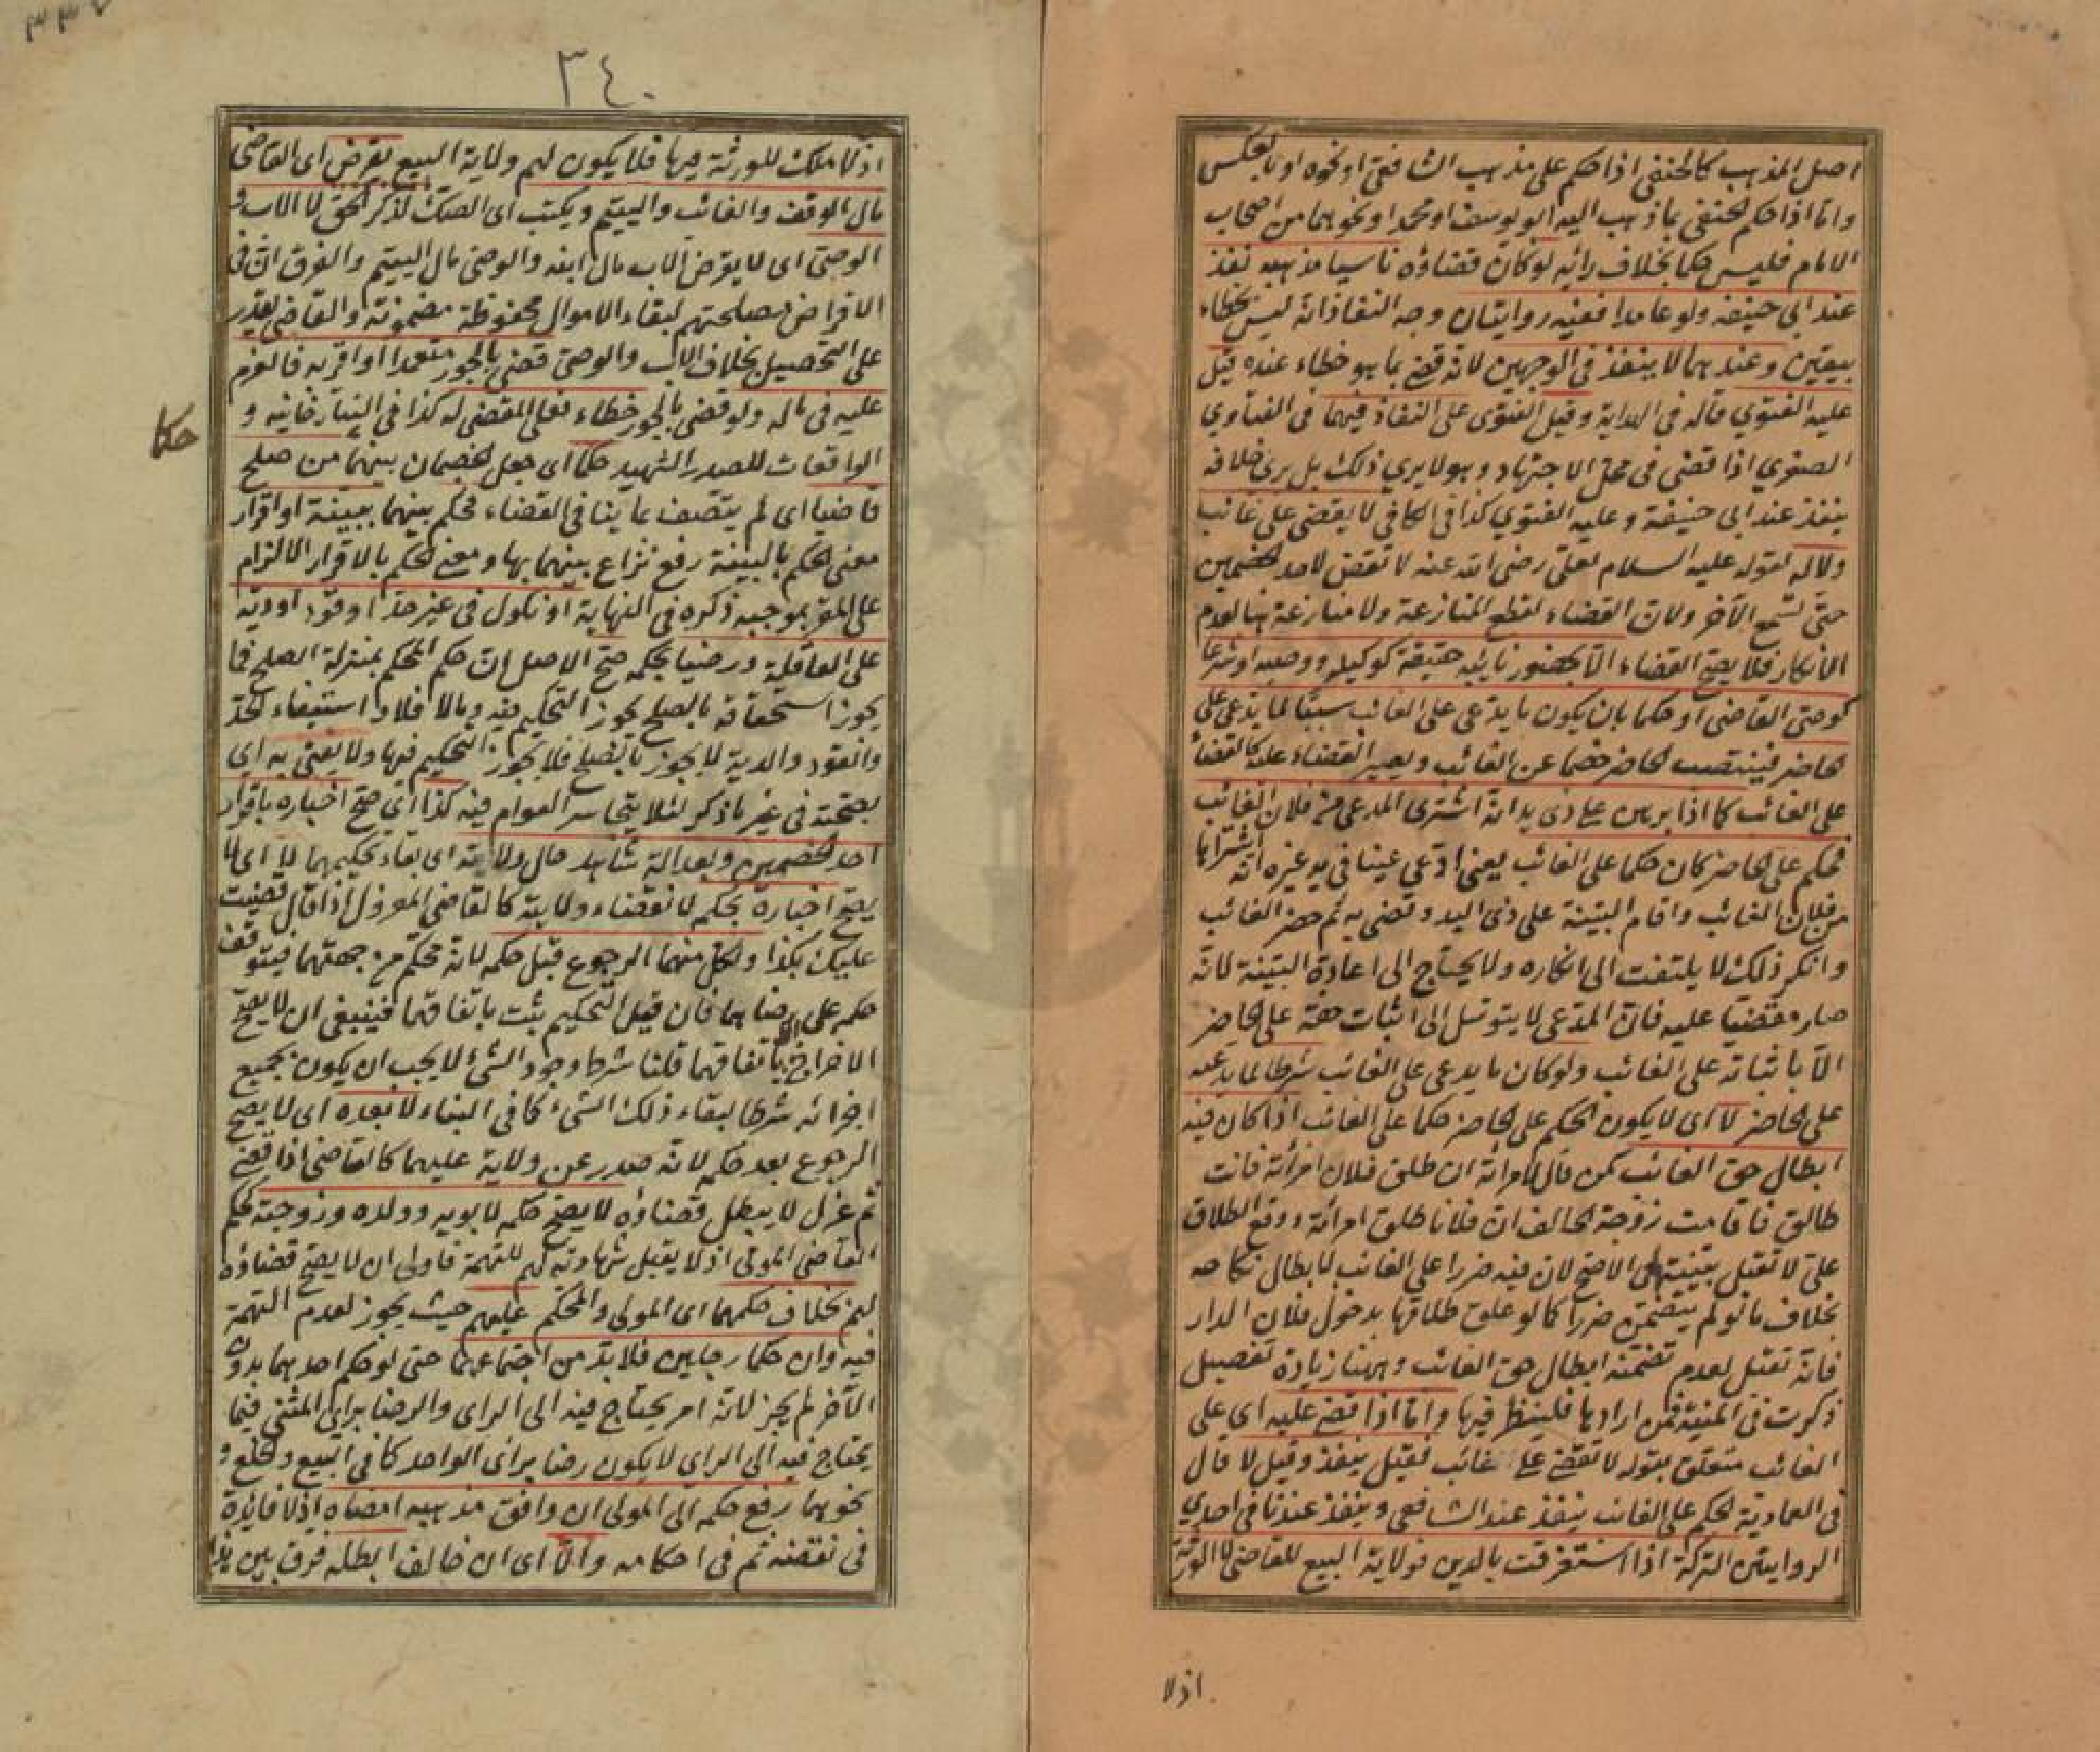 اصل المذهب كالحنفي اذا حكم على مذهب الشافعي او نحوه او بالعكس
واما اذا حكم الحنفي بما ذهب اليه ابو يوسف او محمد او نحوهما من اصحاب
الامام فليس حكما بخلاف رأيه لو كان قضاؤه ناسيا مذهبه نفذ
عند ابي حنيفة ولو عامدا ففيه روايتان وجه النفاذ انه ليس بخطاء
بيقين وعندهما لا ينفذ في الوجهين لانه قضى بما هو خطاء عنده قيل
عليه الفتوي قاله في الهداية وقيل الفتوى على النفاذ فيهما في الفتاوي
الصغري اذا قضى في محل الاجتهاد وهو لا يري ذلك بل يرى خلافه
ينفذ عند ابي حنيفة وعليه الفتوي كذا في الكافي لا يقضى على غائب
ولا له لقوله عليه السلام لعلي رضى الله عنه لا تقض لاحد الخصمين
حتى تسمع الآخر ولان القضاء لقطع المنازعة ولا منازعة هنا لعدم
الانكار فلا يصح القضاء الا بحضور نائبه حقيقة كوكيله ووصيه او شرعا
كوصى القاضى او حكما بان يكون ما يدعى على الغائب سببا لما يدعى على
الحاضر فينتصب الحاضر خصما عن الغائب ويصير القضاء عليه كالقضاء
على الغائب كما اذا برهن على ذى يد انه اشترى المدعى من فلان الغائب
فحكم على الحاضر كان حكما على الغائب يعنى ادعى عينا في يد غيره انه اشتراها
من فلان الغائب واقام البينة على ذى اليد وقضى به ثم حضر الغائب
وانكر ذلك لا يلتفت الى انكاره ولا يحتاج الى اعادة البينة لانه
صار مقضيا عليه فان المدعى لا يتوسل الى اثبات حقه على الحاضر
الا باثباته على الغائب ولو كان ما يدعى على الغائب شرطا لما يدعيه
على الحاضر لا اى لا يكون الحكم على الحاضر حكما على الغائب اذا كان فيه
ابطال حق الغائب كمن قال لامرأته ان طلق فلان امرأته فانت
طالق فاقامت زوجة الحالف ان فلانا طلق امرأته ووقع الطلاق
على لا تقبل بينتها في الاصح لان فيه ضررا على الغائب لابطال نكاحه
بخلاف ما لو لم يتضمن ضررا كما لو علق طلاقها بدخول فلان الدار
فانه تقبل لعدم تضمنه ابطال حق الغائب وههنا زيادة تفصيل
ذكرت في المنية فمن ارادها فلينظر فيها واما اذا قضى عليه اي على
الغائب متعلق بقوله لا تقضى على غائب فقيل ينفذ وقيل لا قال
في العمادية الحكم على الغائب ينفذ عند الشافعي وينفذ عندنا في احدي
الروايتين التركة اذا استغرقت بالدين فولاية البيع للقاضى لا الورثة
اذلا
٣٤٠
اذ لا ملك للورثة فيها فلا يكون لهم ولاية البيع يقرض اى القاضى
مال الوقف والغائب واليتيم ويكتب اى الصك لذكر الحق لا الاب و
الوصى اى لا يقرض الاب مال ابنه والوصى مال اليتيم والفرق ان في
الاقراض مصلحتهم لبقاء الاموال محفوظة مضمونة والقاضى يقدر
على التحصيل بخلاف الاب والوصى قضى بالجور متعمدا او اقر به فالغرم
عليه في ماله ولو قضى بالجور خطاء فعلى المقضى له كذا في التتارخانيه و
الواقعات للصدر الشهيد حكما اى جعل الخصمان بينهما من صلح
قاضيا اى لم يتصف بما ينافي القضاء فحكم بينهما ببينة او اقرار
معنى الحكم بالبينة رفع نزاع بينهما بها ومعنى الحكم بالاقرار الالزام
على المقر بموجبه ذكره في النهاية او نكول في غير حد او قود او دية
على العاقلة ورضيا بحكمه صح الاصل ان حكم المحكم بمنزلة الصلح فما
يجوز استحقاقه بالصلح يجوز التحكيم فيه وما لا فلا واستيفاء الحد
والقود والدية لا يجوز بالصلح فلا يجوز التحكيم فيها ولا يفتى به اي
بصحته في غير ما ذكر لئلا يتجاسر العوام فيه كذا اى صح اخباره باقرار
احد الخصمين وبعدالة شاهد حال ولايته اى بقاء تحكيمهما لا اى لا
يصح اخباره بحكمه لانقضاء ولايته كالقاضى المعزول اذا قال قضيت
عليك بكذا ولكل منهما الرجوع قبل حكمه لانه محكم من جهتهما فيتوقف
حكمه على رضاهما فان قيل التحكيم ثبت باتفاقهما فينبغى ان لا يصح
الاخراج الا باتفاقهما قلنا شرط وجود الشئ لا يجب ان يكون بجميع
اجزائه شرطا لبقاء ذلك الشئ كما في البناء لا بعده اى لا يصح
الرجوع بعد حكمه لانه صدر عن ولاية عليهما كالقاضى اذا قضى
ثم عزل لا يبطل قضاؤه لا يصح حكمه لابويه وولده وزوجته كحكم
القاضى المولى اذ لا يقبل شهادته لهم للتهمة فاولى ان لا يصح قضاؤه
لهم بخلاف حكمهما اى المولى والمحكم عليهم حيث يجوز لعدم التهمة
فيه وان حكما رجلين فلا بد من اجتماعهما حتى لو حكم احدهما بدون
الآخر لم يجز لانه امر يحتاج فيه الى الراى والرضا براى المثنى فيما
يحتاج فيه الى الراى لا يكون رضا براى الواحد كما في البيع والخلع و
نحوهما رفع حكمه الى المولى ان وافق مذهبه امضاه اذ لا فائدة
في نقضه ثم في احكامه والا اى ان خالف ابطله فرق بين هذا
حكما